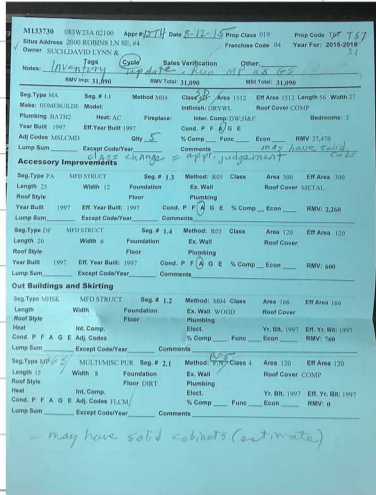 M133730 083W23A 02100 Appr # DT4 Date 8-12-15 Prop Class 019 Prop Code T57
Situs Address 2000 ROBINS LN SE, #4 Franchise Code 04 Year For: 2015-2016
Owner SUCH,DAVID LYNN & 3.1
Tags Cycle Sales Verification Other:
Notes: Inventory update, Run MP as GS
RMV Impr: 31,090 RMV Total: 31,090 M50 Total: 31,090
Seg.Type MA Seg. # 1.1 Method M04 Class 5D Area 1512 Eff Area 1512 Length 56 Width 27
Make: HOMEBUILDE Model: Intfinish: DRYWL Roof Cover COMP
Plumbing BATH2 Heat: AC Fireplace: Inter. Comp: DW,H&F Bedrooms: 3
Year Built 1997 Eff.Year Built 1997 Cond. P F A G E
Adj Codes MSLCMD Qty 5 % Comp Func Econ RMV 27,470
Lump Sum Except Code/Year Comments may have solid
class change = appr. judgement cabs
Accessory Improvements
Seg.Type PA MFD STRUCT Seg. # 1.3 Method: R05 Class Area 300 Eff Area 300
Length 25 Width 12 Foundation Ex. Wall Roof Cover METAL
Roof Style Floor Plumbing
Year Built 1997 Eff. Year Built: 1997 Cond. P F A G E % Comp Econ RMV: 2,260
Lump Sum Except Code/Year Comments
Seg.Type DF MFD STRUCT Seg. # 1.4 Method: R05 Class Area 120 Eff Area 120
Length 20 Width 6 Foundation Ex. Wall Roof Cover
Roof Style Floor Plumbing
Year Built 1997 Eff. Year Built: 1997 Cond. P F A G E % Comp Econ RMV: 600
Lump Sum Except Code/Year Comments
Out Buildings and Skirting
Seg.Type MHSK MFD STRUCT Seg. # 1.2 Method: M04 Class Area 166 Eff Area 166
Length Width Foundation Ex. Wall WOOD Roof Cover
Roof Style Floor Plumbing
Heat Int. Comp. Elect. Yr. Blt. 1997 Eff. Yr. Blt: 1997
Cond. P F A G E Adj. Codes % Comp Func Econ RMV: 760
Lump Sum Except Code/Year Comments
Seg.Type GS MULTI/MISC PUR Seg. # 2.1 Method: R05 Class 4 Area 120 Eff Area 120
Length 15 Width 8 Foundation Ex. Wall Roof Cover COMP
Roof Style Floor DIRT Plumbing
Heat Int. Comp. Elect. Yr. Blt. 1997 Eff. Yr. Blt: 1997
Cond. P F A G E Adj. Codes FLCM/ % Comp Func Econ RMV: 0
Lump Sum Except Code/Year Comments
- may have solid cabinets (estimate)